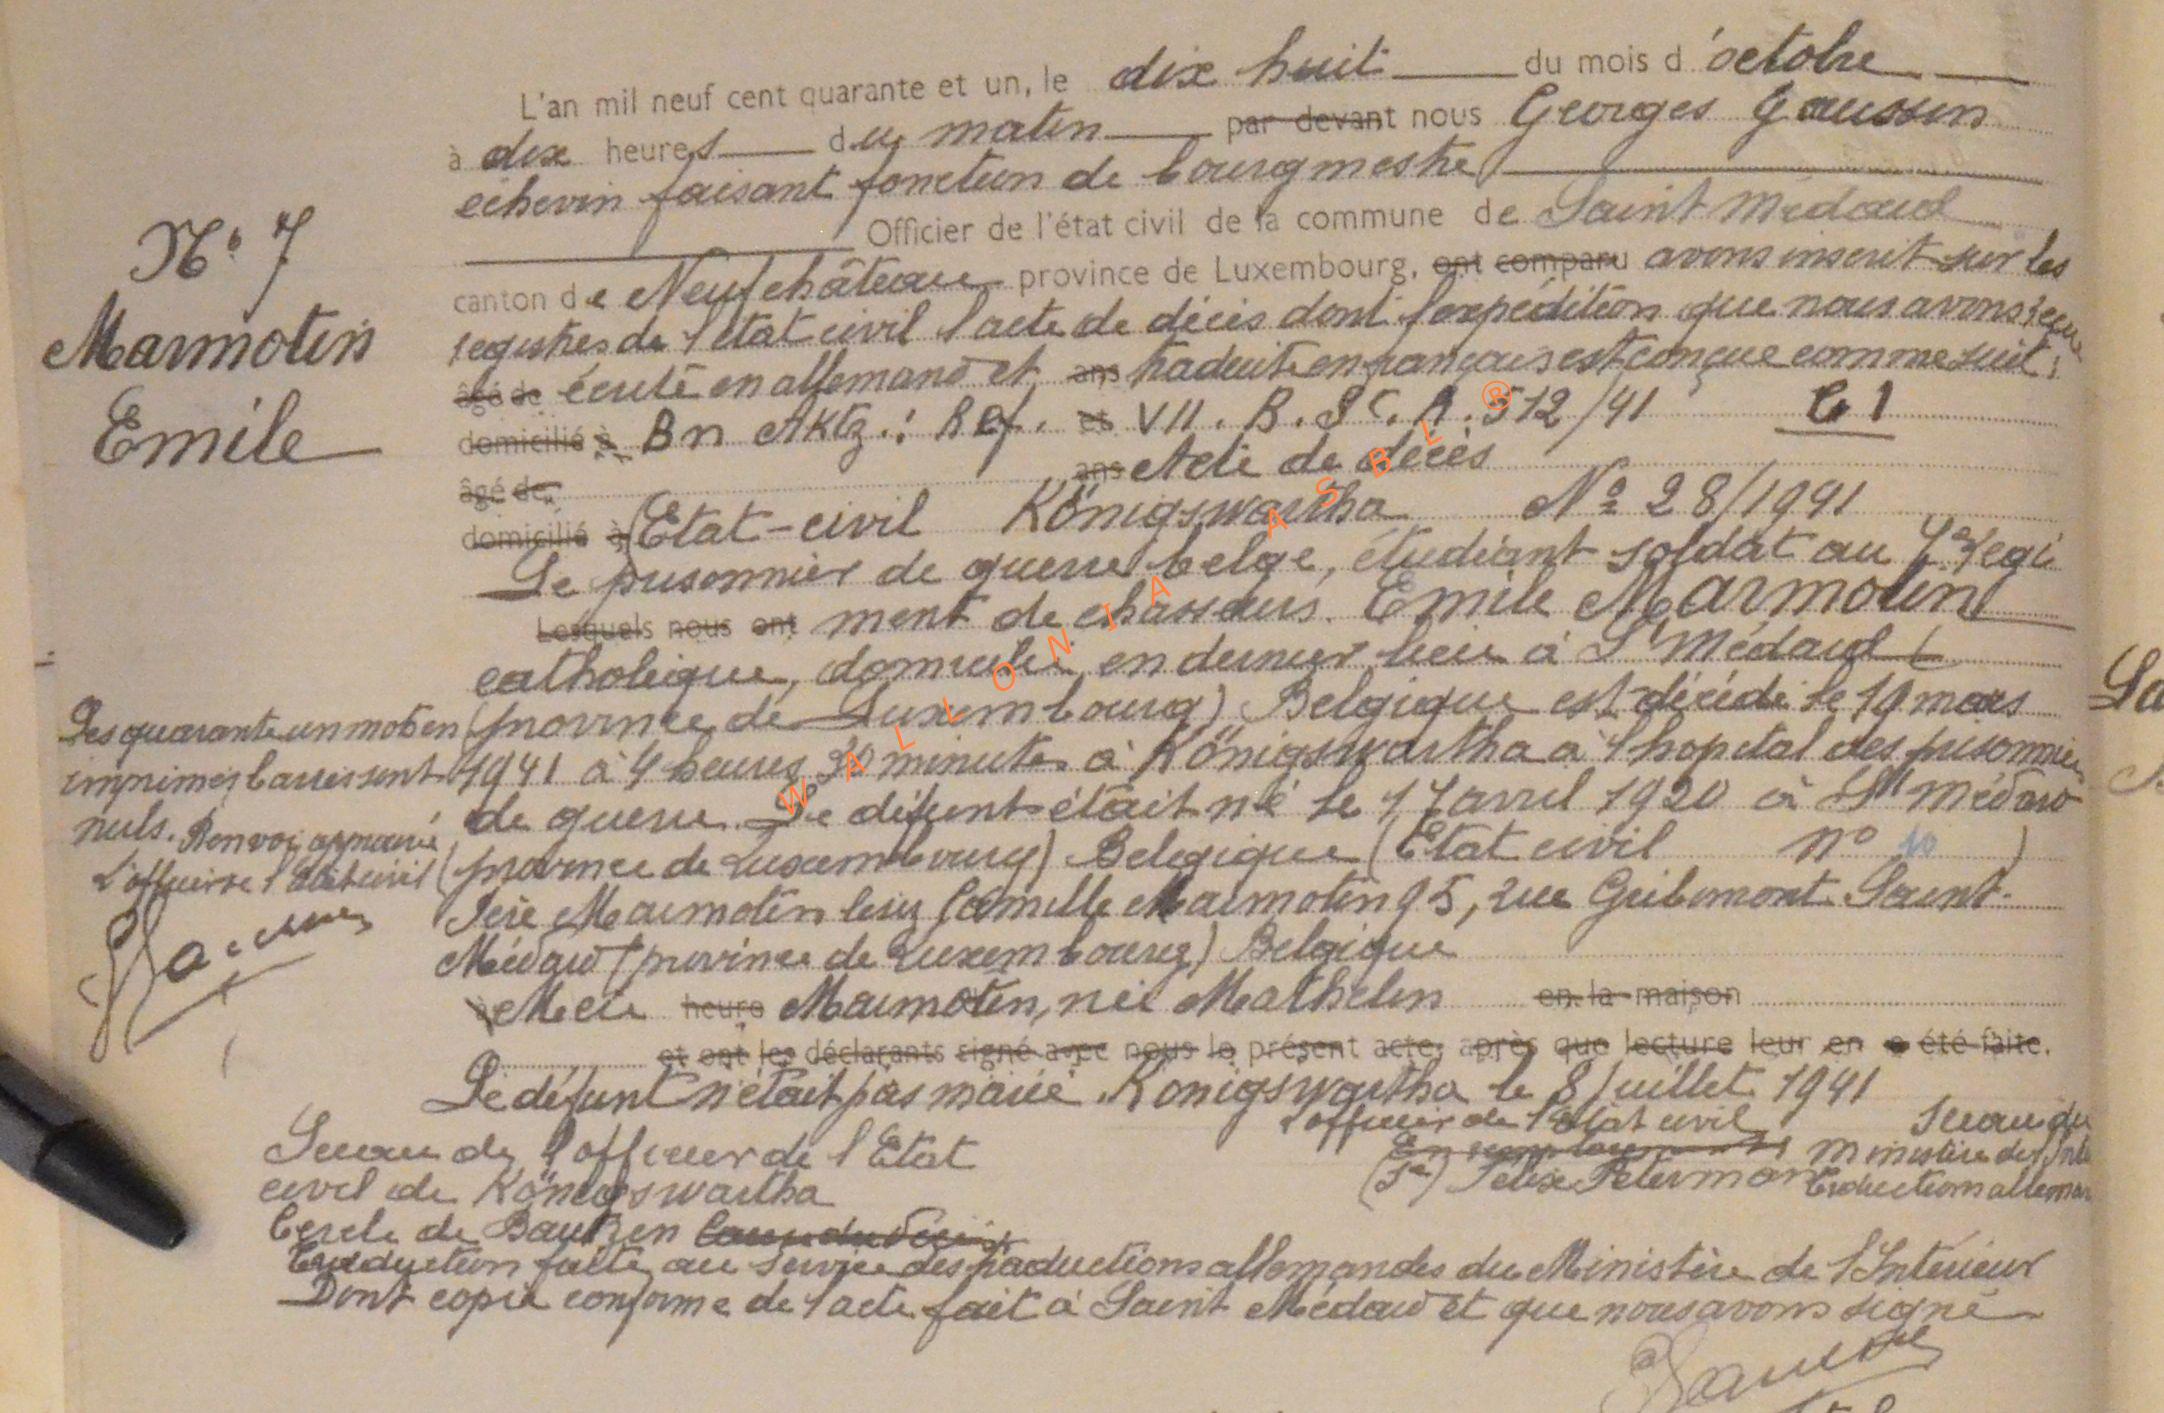 L'an mil neuf cent quarante et un, le dix huit du mois d'octobre
à dix heures du matin par devant nous Georges Goussin
échevin faisant fonction de bourgmestre
Officier de l'état civil de la commune de Saint Médard
canton de Neufchâteau province de Luxembourg, ont comparu avons inscrit sur les
registres de l'état civil l'acte de décès dont l'expédition que nous avons reçue
âgé de écrite en allemand et ans traduite en français est conçue comme suit :
domicilié à Bn Aktz.: Ref. et VII. B. St. A. 512/41 C 1
âgé de ans Acte de décès
domicilié à Etat-civil Königswartha N° 28/1941
Le prisonnier de guerre belge, étudiant soldat au régi
Lesquels nous ont ment de chasseurs. Emile Marmotin
catholique, domicilié en dernier lieu à St Médard
(province de Luxembourg) Belgique est décédé le 19 mars
1941 à 4 heures 30 minutes à Königswartha à l'hopital des prisonniers
de guerre. Le défunt était né le 17 avril 1920 à St Médard
(province de Luxembourg) Belgique (Etat civil n° 10)
Père Marmotin Camille Marmotin 95, rue Gribomont Saint-
Médard (province de Luxembourg) Belgique
à Mère heure Marmotin, née Mathelin en la maison
et ont les déclarants signé avec nous le présent acte, après que lecture leur en a été faite.
Le défunt n'était pas marié. Königswartha le 8 juillet 1941
l'officier de l'Etat civil
Sceau de l'officier de l'Etat
civil de Königswartha
(Sé) Felix Petermann
Sceau du
Ministère de l'Inté
Traduction alleman
Cercle de Bautzen
Traduction faite au service des traductions allemandes du Ministère de l'Intérieur
Dont copie conforme de l'acte fait à Saint Médard et que nous avons signé
N° 7
Marmotin
Emile
Les quarante un mots en
imprimés barrés sont
nuls. Renvoi approuvé
L'officier de l'Etat civil
WALLONIA ASBL ®